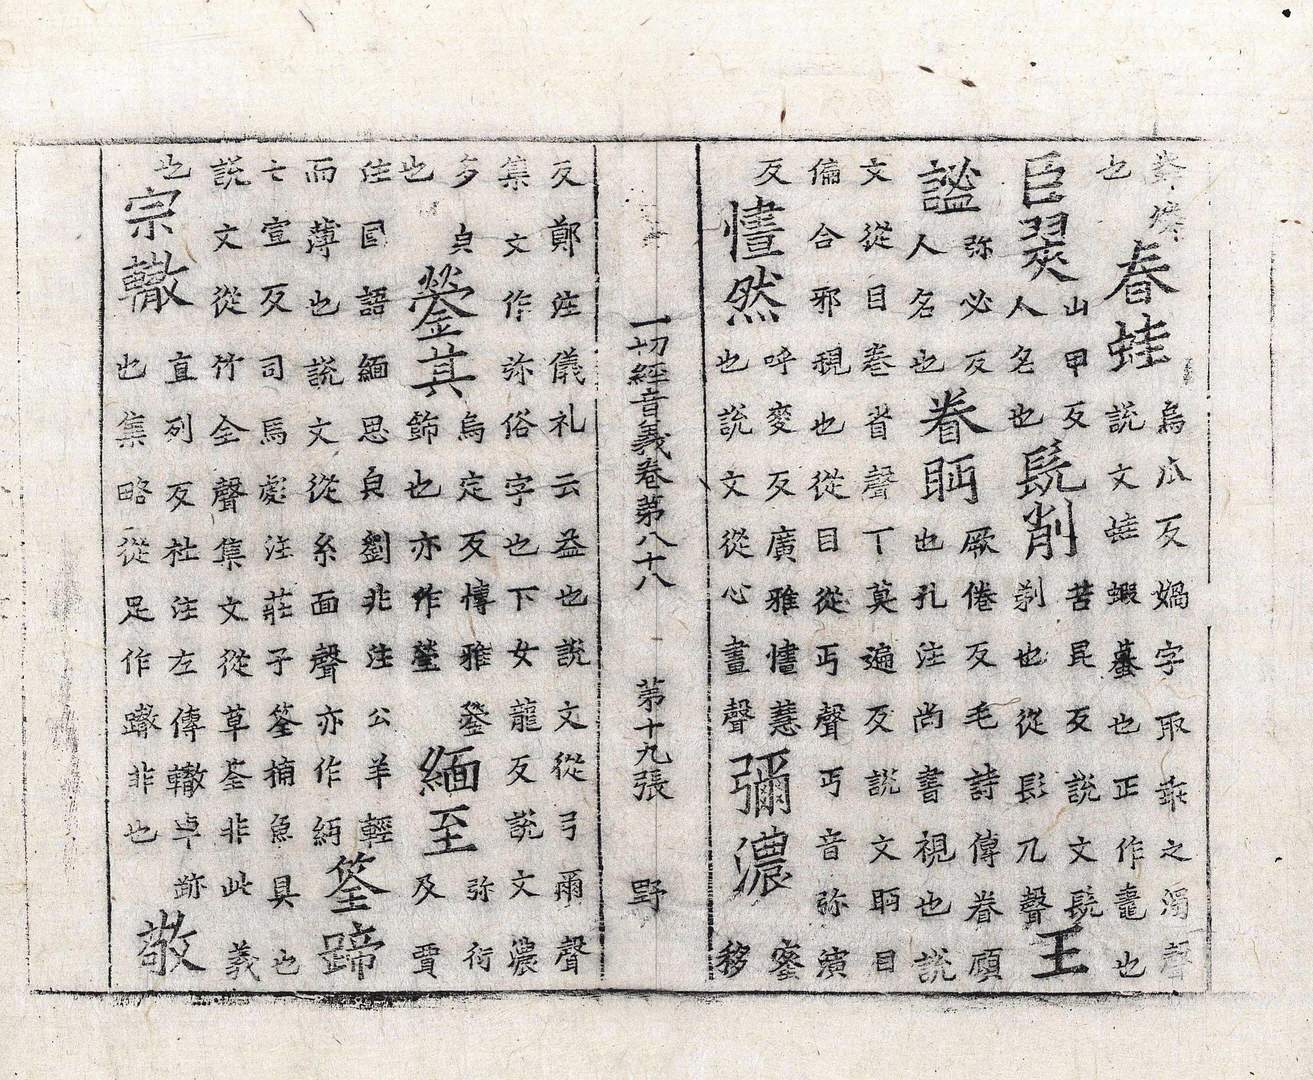 春蛙烏瓜反媧字取乖之濁聲
也說文蛙蝦蟇也正作鼃也
臣翣山甲反人名也髡削苦昆反說文髡剃也從髟兀聲王
謐弥必反人名也眷眄厥倦反毛詩傳眷頋也孔注尚書視也說
文從目𢍏省聲丅莫遍反說文眄目
偏合邪視也從目從丏聲丏音弥演
反㦎然呼麥反廣雅㦎慧也說文從心畫聲彌濃移
一切經音義卷第八十八 第十九張 野
反鄭注儀礼云益也說文從弓爾聲
集文作弥俗字也下女龍反說文濃
多皃也鎣其烏定反博雅鎣飾也亦作瑩緬至弥衍反賈
注國語緬思皃劉兆注公羊輕
而薄也說文從糸面聲亦作筌蹄
七宣反司馬彪注莊子筌捕魚具也
說文從竹全聲集文從草荃非此義
也宗轍直列反杜注左傳轍車跡也集略從足作非也敬